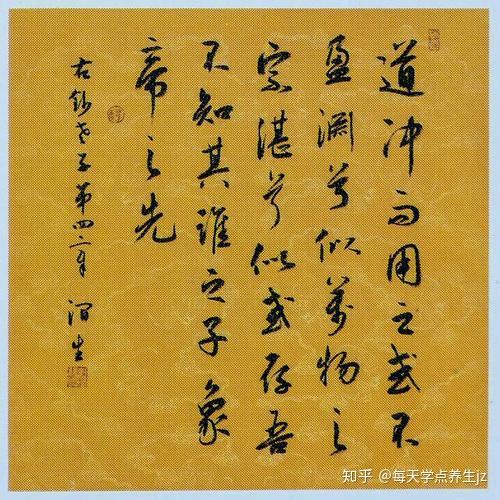 道沖而用之或不
盈淵兮似萬物之
宗湛兮似或存吾
不知其誰之子象
帝之先
右鈔老子第四章 生
知乎 @每天学点养生jz